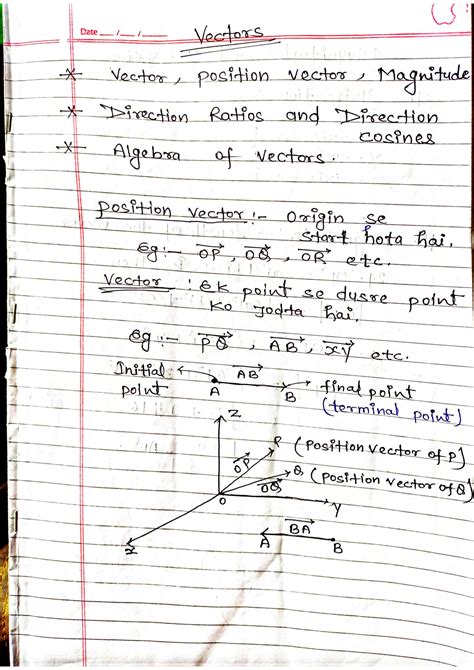 Date __/__/____
Vectors
* Vector, position vector, Magnitude
* Direction Ratios and Direction
cosines
* Algebra of vectors.
position vector :- Origin se
start hota hai.
eg :- OP, OQ, OR etc.
Vector : ek point se dusre point
ko Jodta hai.
eg :- PQ, AB, XY etc.
Initial point
AB
A
B
final point
(terminal point)
Z
P (Position vector of P)
OP
Q (Position vector of Q)
OQ
O
Y
BA
A
B